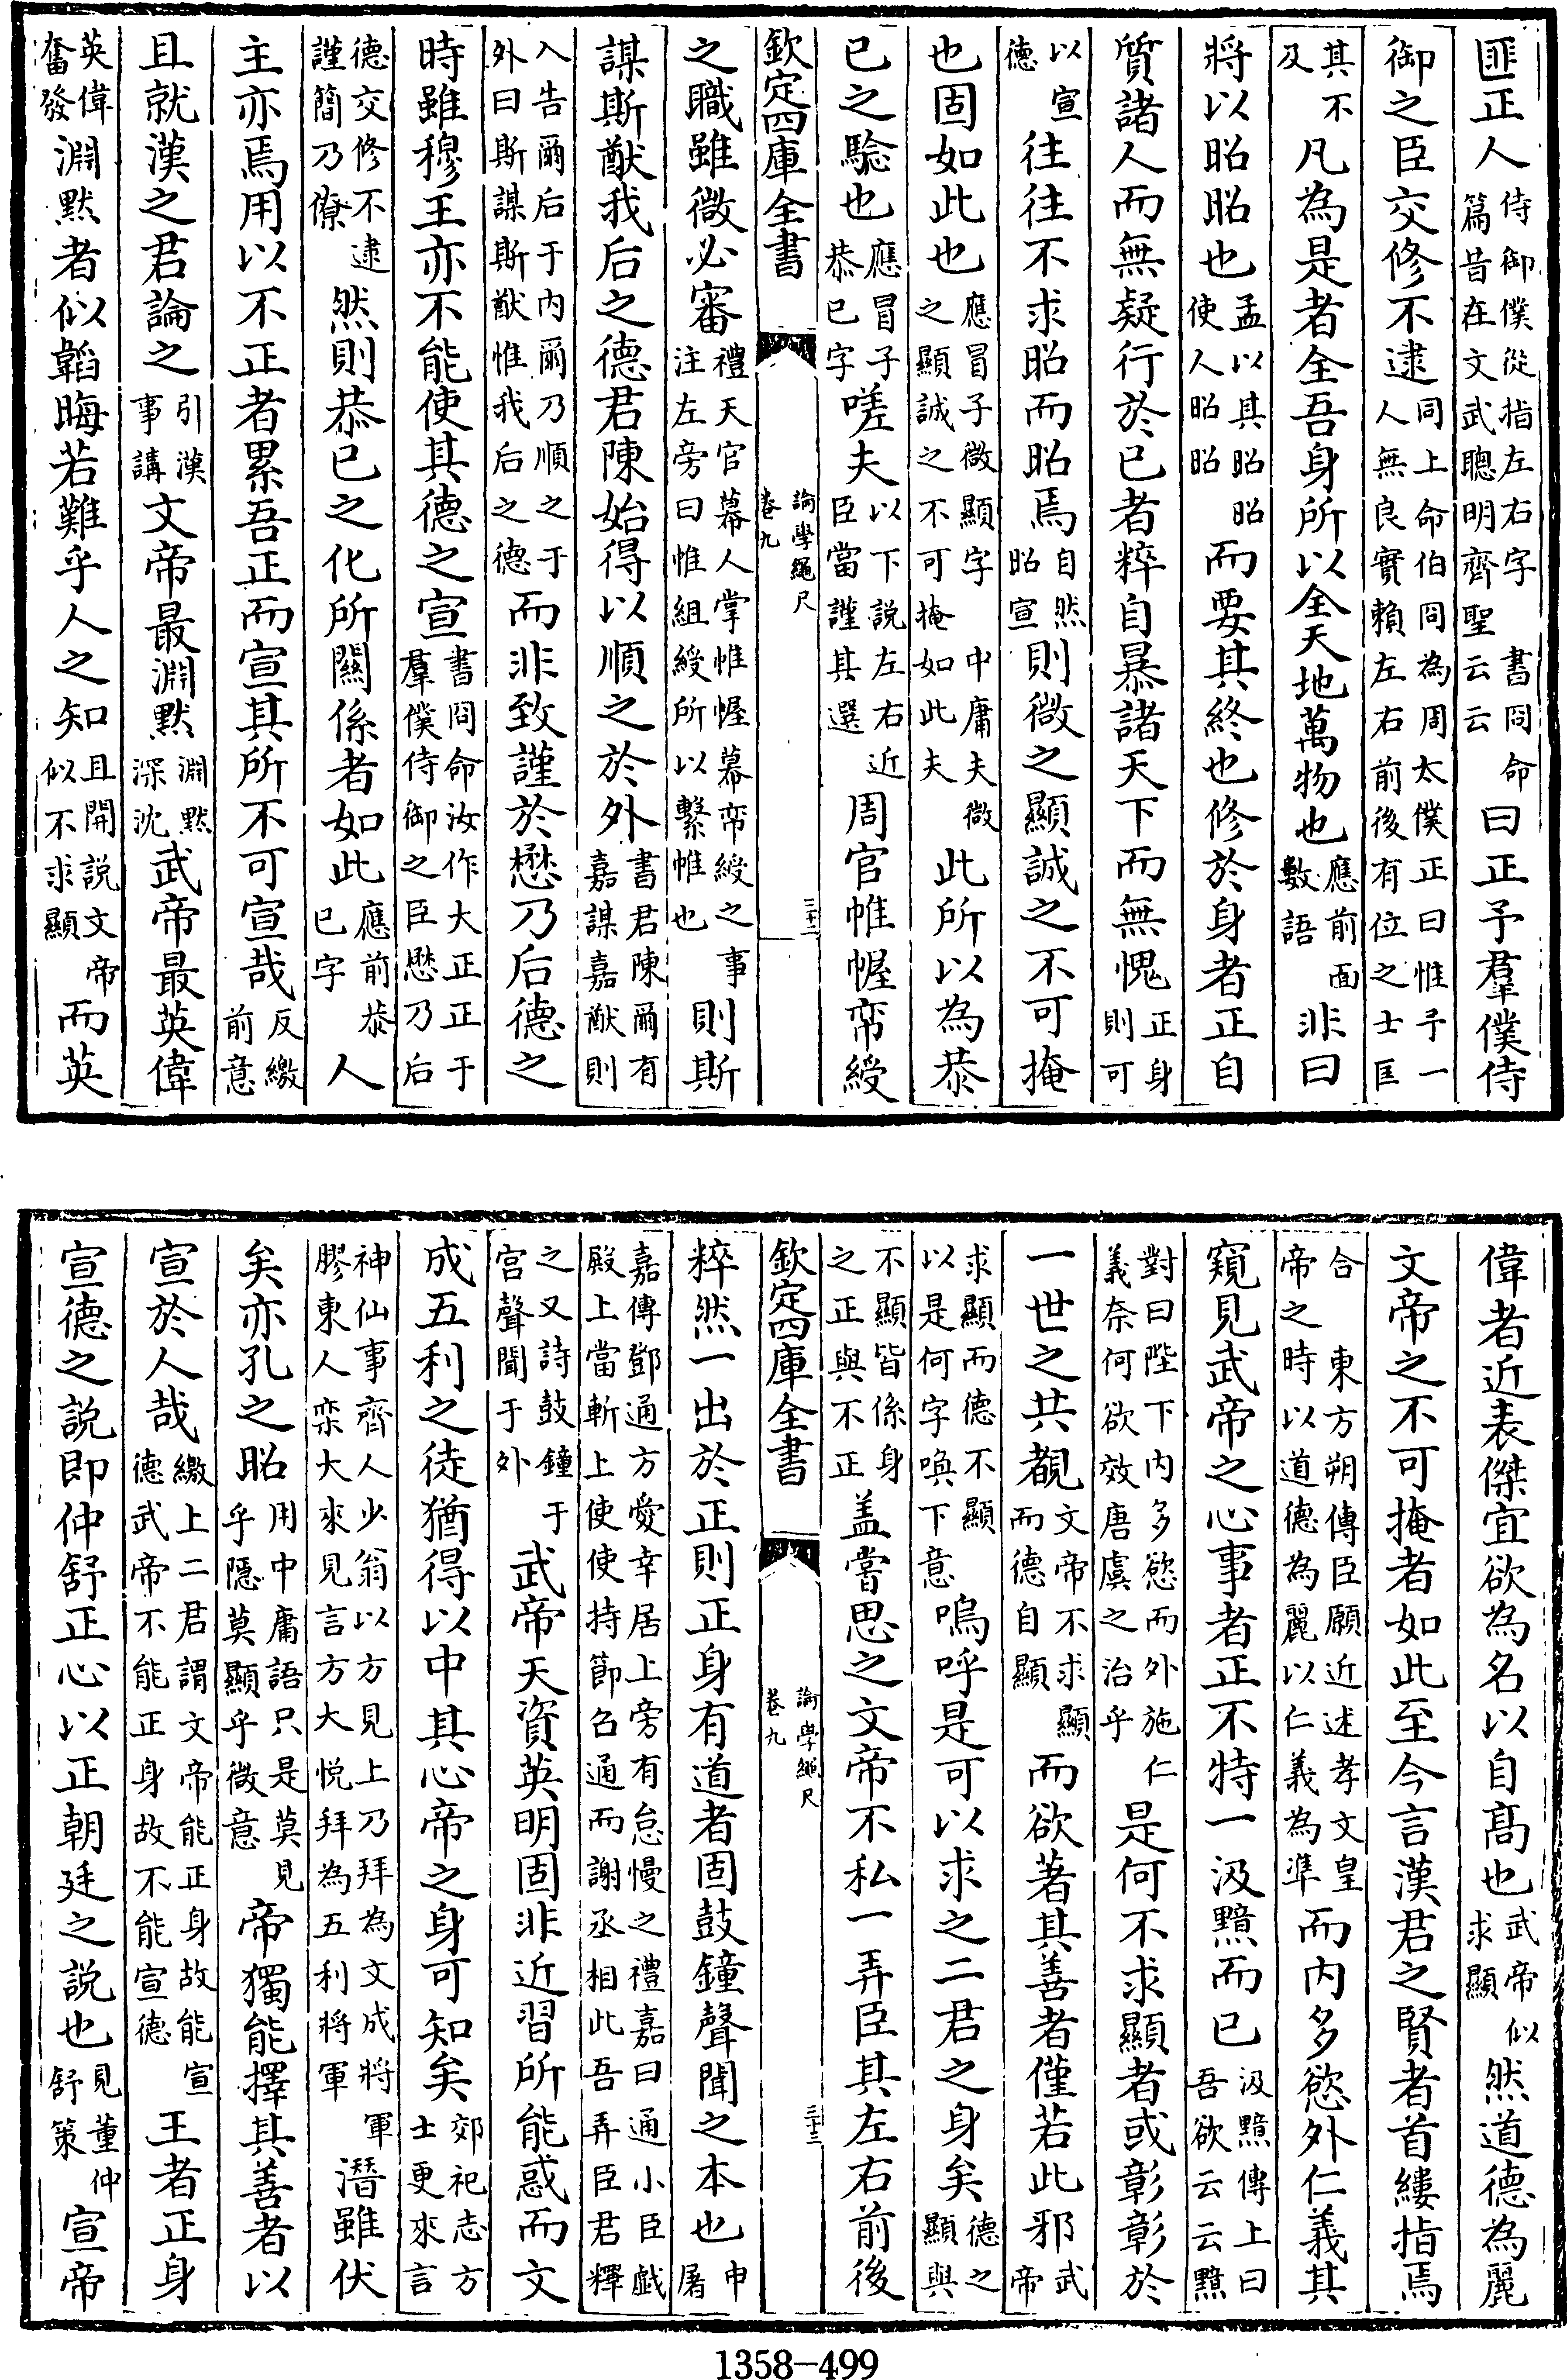 匪正人侍御僕從指左右字　書冏命篇昔在文武聰明齊聖云云曰正予羣僕侍
御之臣交修不逮同上命伯冏為周太僕正曰惟予一人無良實賴左右前後有位之士匡
其不及凡為是者全吾身所以全天地萬物也應前面數語非曰
將以昭昭也孟以其昭昭使人昭昭而要其終也修於身者正自
質諸人而無疑行於已者粹自暴諸天下而無愧正身則可
以宣德往往不求昭而昭焉自然昭宣則微之顯誠之不可掩
也固如此也應冒子微顯字　中庸夫微之顯誠之不可掩如此夫此所以為恭
已之驗也應冒子恭已字嗟夫以下説左右近臣當謹其選周官帷幄帟綬
欽定四庫全書　論學繩尺　卷九　三十二
之職雖微必審禮天官幕人掌帷幄幕帟綬之事注左旁曰帷組綬所以繫帷也則斯
謀斯猷我后之德君陳始得以順之於外書君陳爾有嘉謀嘉猷則
入告爾后于内爾乃順之于外曰斯謀斯猷惟我后之德而非致謹於懋乃后德之
時雖穆王亦不能使其德之宣書冏命汝作大正正于羣僕侍御之臣懋乃后
德交修不逮謹簡乃僚然則恭已之化所關係者如此應前恭已字人
主亦焉用以不正者累吾正而宣其所不可宣哉反繳前意
且就漢之君論之引漢事講文帝最淵默淵默深沈武帝最英偉
英偉奮發淵默者似韜晦若難乎人之知且開説文帝似不求顯而英
偉者近表傑宜欲為名以自髙也武帝似求顯然道德為麗
文帝之不可掩者如此至今言漢君之賢者首縷指焉
合帝之時以道德為麗以仁義為準　東方朔傳臣願近述孝文皇而内多慾外仁義其
窺見武帝之心事者正不特一汲黯而已汲黯傳上曰吾欲云云黯
對曰陛下内多慾而外施仁義奈何欲效唐虞之治乎是何不求顯者或彰彰於
一世之共覩文帝不求顯而德自顯而欲著其善者僅若此邪武帝
求顯而德不顯以是何字喚下意嗚呼是可以求之二君之身矣德之顯與
不顯皆係身之正與不正盖嘗思之文帝不私一弄臣其左右前後
欽定四庫全書　論學繩尺　卷九　三十三
粹然一出於正則正身有道者固鼓鐘聲聞之本也申屠
嘉傳鄧通方愛幸居上旁有怠慢之禮嘉曰通小臣戯殿上當斬上使使持節召通而謝丞相此吾弄臣君釋
之又詩鼓鐘于宫聲聞于外武帝天資英明固非近習所能惑而文
成五利之徒猶得以中其心帝之身可知矣郊祀志方士更來言
神仙事齊人少翁以方見上乃拜為文成將軍膠東人欒大來見言方大悦拜為五利將軍潛雖伏
矣亦孔之昭用中庸語只是莫見乎隱莫顯乎微意帝獨能擇其善者以
宣於人哉繳上二君謂文帝能正身故能宣德武帝不能正身故不能宣德王者正身
宣德之説即仲舒正心以正朝廷之説也見董仲舒策宣帝
1358-499